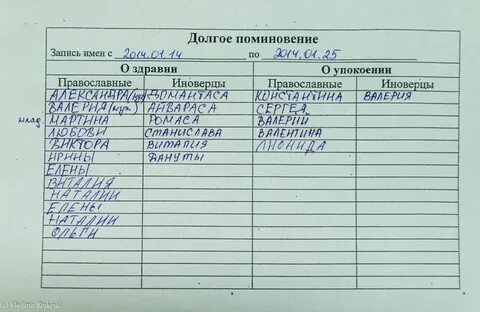 Долгое поминовение
Запись имен с 2014.01.14 по 2014.01.25
О здравии О упокоении
Православные Иноверцы Православные Иноверцы
АЛЕКСАНДРА ДОМАНТАСА КОНСТАНТИНА ВАЛЕРИЯ
ВАЛЕРИЯ АНВАРАСА СЕРГЕЯ
млад. МАРТИНА РОМАСА ВАЛЕРИИ
ЛЮБОВИ СТАНИСЛАВА ВАЛЕНТИНА
ВИКТОРА ВИТАЛИЯ ЛИОНИДА
ИРИНЫ ДАНУТЫ
ЕЛЕНЫ
ВИТАЛИЯ
НАТАЛИИ
ЕЛЕНЫ
НАТАЛИИ
ОЛЬГИ
(c) Vladimir